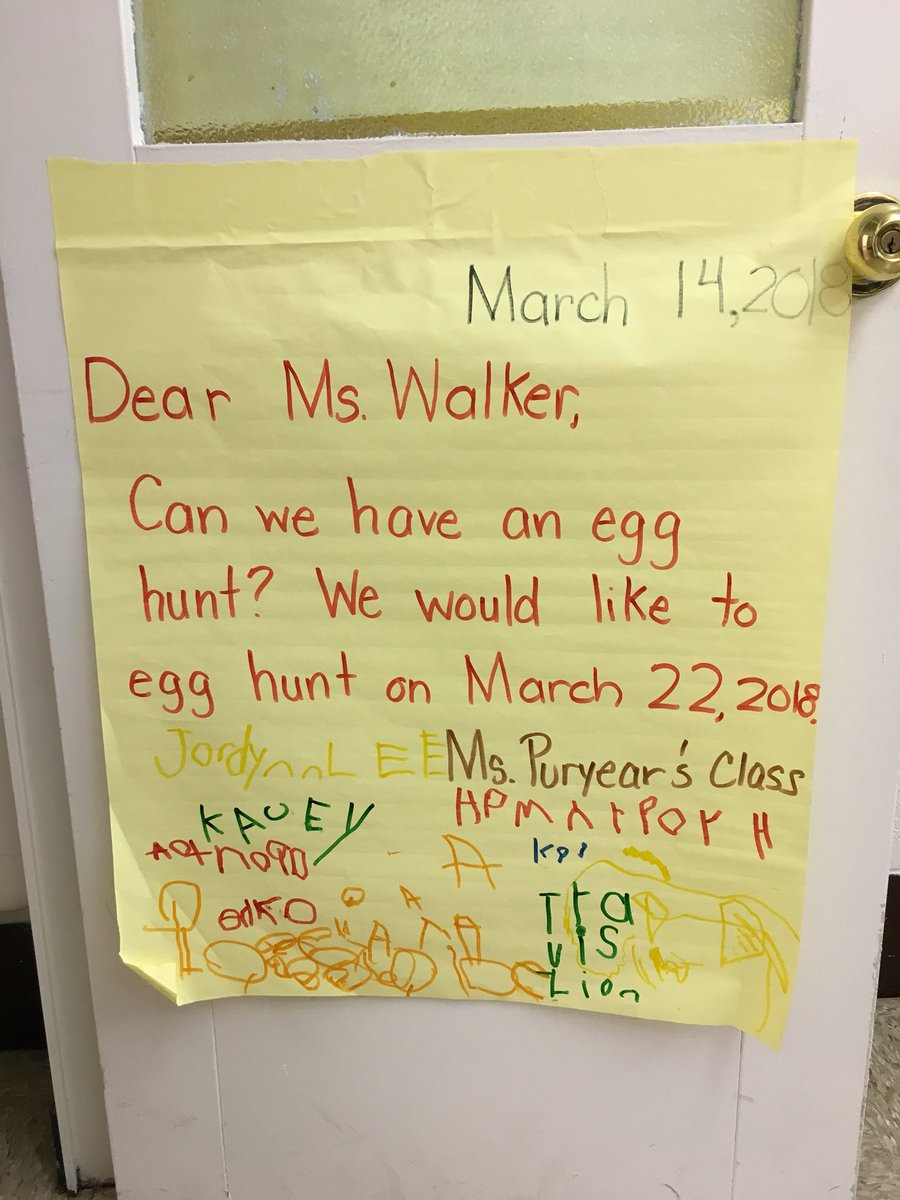 March 14, 2018
Dear Ms. Walker,
Can we have an egg
hunt? We would like to
egg hunt on March 22, 2018.
JordynnLEE Ms. Puryear's Class
KAUEY
Tra
vis
Lion